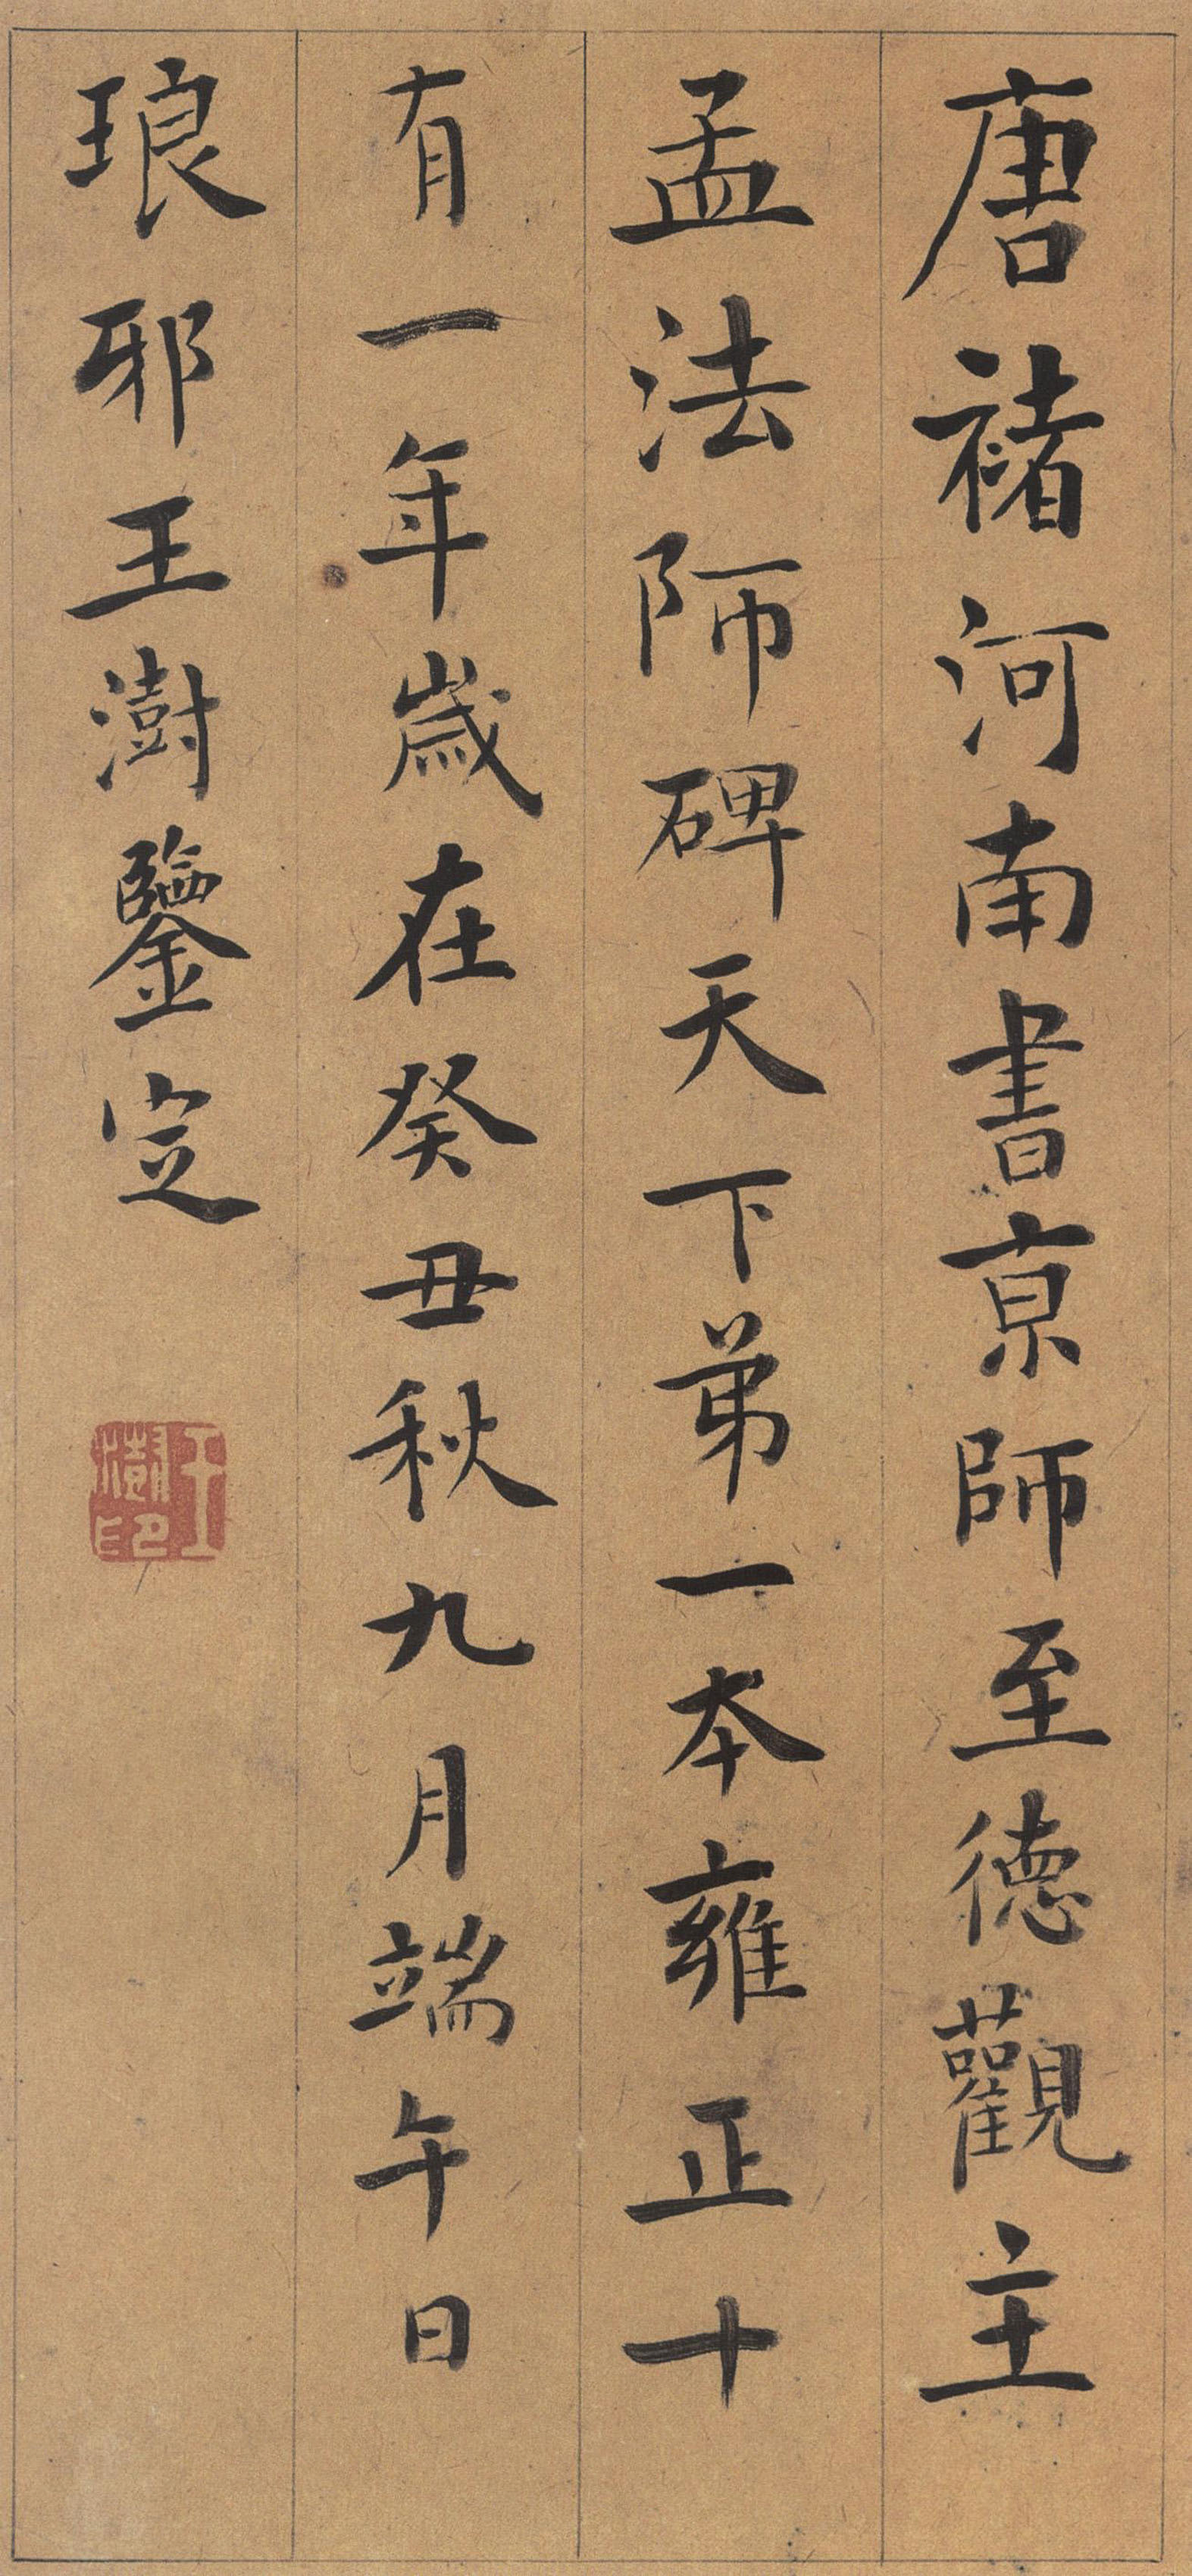 唐褚河南書京師至德觀主
孟法師碑天下弟一本雍正十
有一年歲在癸丑秋九月端午日
琅邪王澍鑒定
王澍印